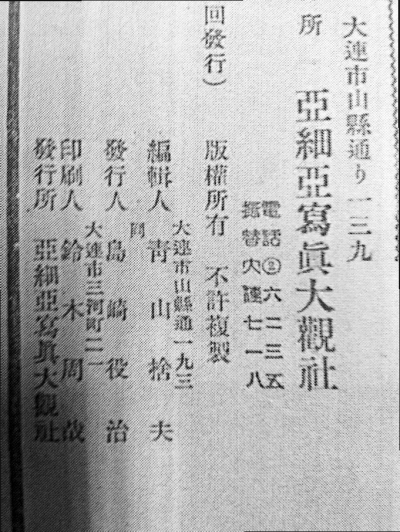 大連市山縣通り一三九
所 亞細亞寫眞大觀社
電話②六二三五
振替大連七一八
回發行） 版權所有 不許複製
大連市山縣通一九三
編輯人 靑山捨夫
同
發行人 島崎役治
大連市三河町二一
印刷人 鈴木周哉
發行所 亞細亞寫眞大觀社